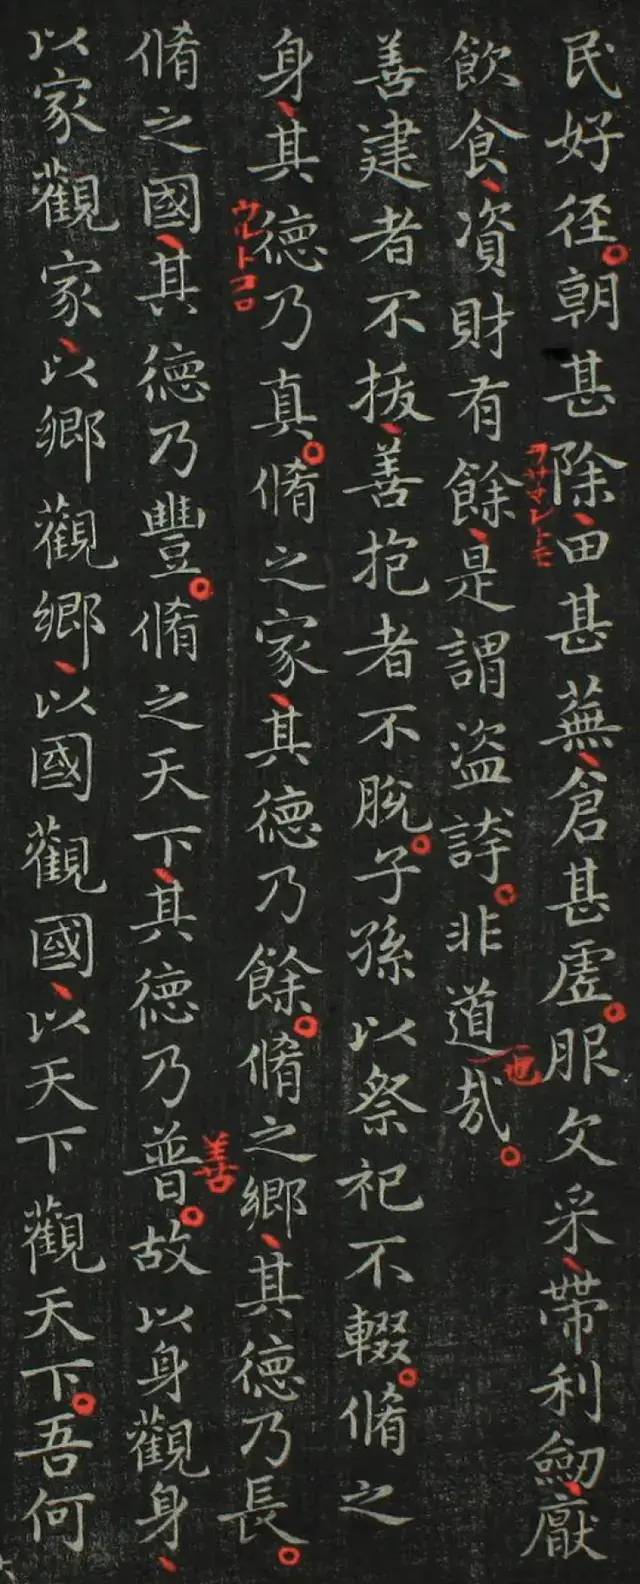 民好径。朝甚除、田甚蕪、倉甚虛。服文采、帶利劒、厭
ヲサマレトモ
飲食、資財有餘、是謂盜誇。非道哉。
也
善建者不拔、善抱者不脫。子孫以祭祀不輟。脩之
身、其德乃真。脩之家、其德乃餘。脩之鄉、其德乃長。
ウルトコロ
脩之國、其德乃豐。脩之天下、其德乃普。故以身觀身、
善
以家觀家、以鄉觀鄉、以國觀國、以天下觀天下。吾何